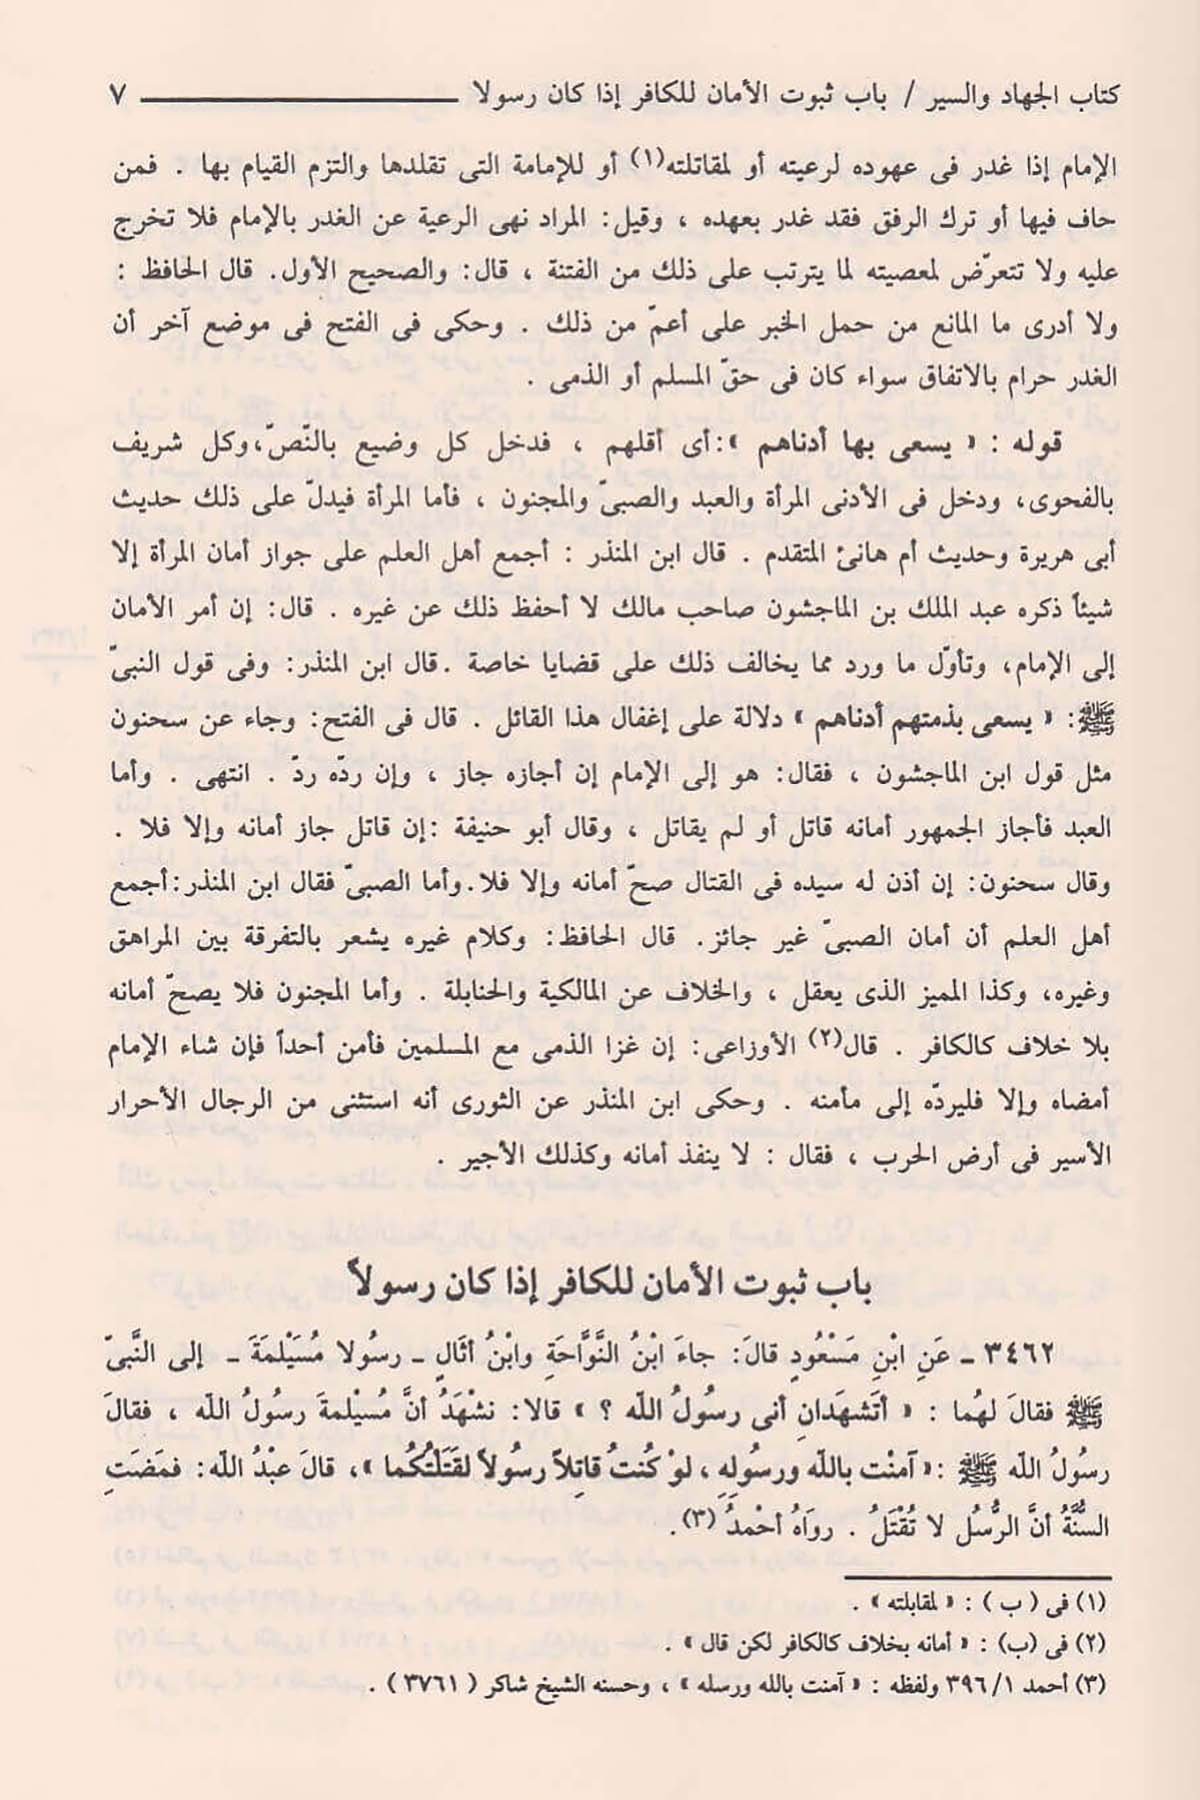 كتاب الجهاد والسير / باب ثبوت الأمان للكافر إذا كان رسولا ٧
الإمام إذا غدر فى عهوده لرعيته أو لمقاتلته(١) أو للإمامة التى تقلدها والتزم القيام بها . فمن
حاف فيها أو ترك الرفق فقد غدر بعهده ، وقيل: المراد نهى الرعية عن الغدر بالإمام فلا تخرج
عليه ولا تتعرّض لمعصيته لما يترتب على ذلك من الفتنة ، قال: والصحيح الأول. قال الحافظ :
ولا أدرى ما المانع من حمل الخبر على أعمّ من ذلك . وحكى فى الفتح فى موضع آخر أن
الغدر حرام بالاتفاق سواء كان فى حقّ المسلم أو الذمى .
قوله : « يسعى بها أدناهم »:أى أقلهم ، فدخل كل وضيع بالنّصّ،وكل شريف
بالفحوى، ودخل فى الأدنى المرأة والعبد والصبىّ والمجنون ، فأما المرأة فيدلّ على ذلك حديث
أبى هريرة وحديث أم هانئ المتقدم . قال ابن المنذر : أجمع أهل العلم على جواز أمان المرأة إلا
شيئاً ذكره عبد الملك بن الماجشون صاحب مالك لا أحفظ ذلك عن غيره . قال: إن أمر الأمان
إلى الإمام، وتأوّل ما ورد مما يخالف ذلك على قضايا خاصة .قال ابن المنذر: وفى قول النبىّ
ﷺ: « يسعى بذمتهم أدناهم » دلالة على إغفال هذا القائل . قال فى الفتح: وجاء عن سحنون
مثل قول ابن الماجشون ، فقال: هو إلى الإمام إن أجازه جاز ، وإن ردّه ردّ . انتهى . وأما
العبد فأجاز الجمهور أمانه قاتل أو لم يقاتل ، وقال أبو حنيفة :إن قاتل جاز أمانه وإلا فلا .
وقال سحنون: إن أذن له سيده فى القتال صحّ أمانه وإلا فلا.وأما الصبىّ فقال ابن المنذر:أجمع
أهل العلم أن أمان الصبىّ غير جائز. قال الحافظ: وكلام غيره يشعر بالتفرقة بين المراهق
وغيره، وكذا المميز الذى يعقل ، والخلاف عن المالكية والحنابلة . وأما المجنون فلا يصحّ أمانه
بلا خلاف كالكافر . قال(٢) الأوزاعى: إن غزا الذمى مع المسلمين فأمن أحداً فإن شاء الإمام
أمضاه وإلا فليردّه إلى مأمنه . وحكى ابن المنذر عن الثورى أنه استثنى من الرجال الأحرار
الأسير فى أرض الحرب ، فقال : لا ينفذ أمانه وكذلك الأجير .
باب ثبوت الأمان للكافر إذا كان رسولاً
٣٤٦٢ ـ عَنِ ابْنِ مَسْعُودٍ قالَ: جاءَ ابْنُ النَّوَّاحَةِ وابْنُ أثَالٍ ـ رسُولا مُسَيْلمَةَ ـ إلى النَّبىِّ
ﷺ فقالَ لهُما : « أتَشهَدَانِ أنى رسُولُ اللّه ؟ » قالا: نشْهَدُ أنَّ مُسَيْلمةَ رسُولُ اللّه ، فقالَ
رسُولُ اللّه ﷺ :« آمنْت باللّه ورسُولِهِ ، لوْ كُنتُ قاتِلاً رسُولاً لقَتَلْتُكُما »، قالَ عبْدُ اللّه: فمَضَتِ
السُّنَّةُ أنَّ الرُّسُل لا تُقْتَلُ . روَاهُ أحْمدُ (٣).
(١) فى ( ب ) : « لمقابلته » .
(٢) فى (ب) : « أمانه بخلاف كالكافر لكن قال » .
(٣) أحمد ١/ ٣٩٦ ولفظه : « آمنت بالله ورسله » ، وحسنه الشيخ شاكر ( ٣٧٦١ ) .